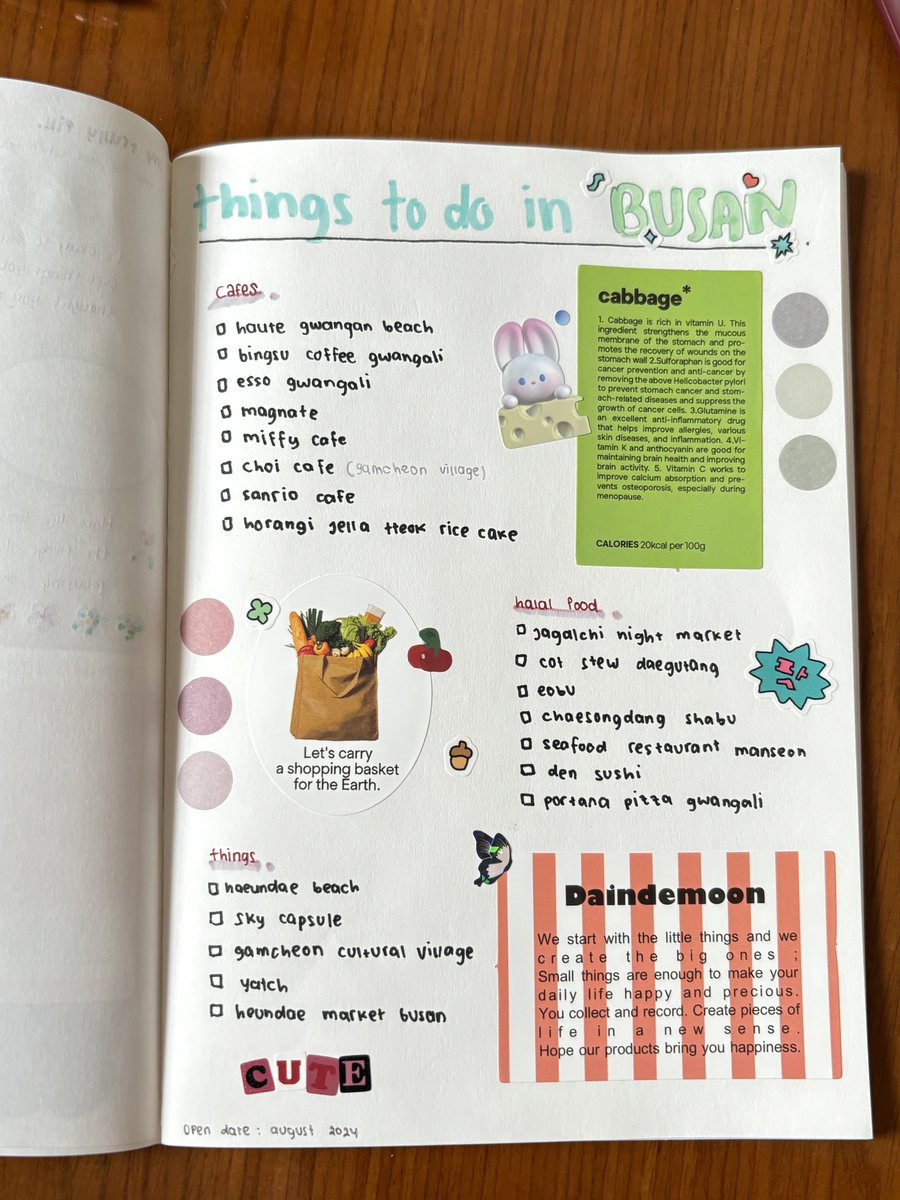 things to do in BUSAN
cafes
haute gwangan beach
bingsu coffee gwangali
esso gwangali
magnate
miffy cafe
choi cafe (gamcheon village)
sanrio cafe
horangi jella tteok rice cake
cabbage*
1. Cabbage is rich in vitamin U. This
ingredient strengthens the mucous
membrane of the stomach and pro-
motes the recovery of wounds on the
stomach wall 2.Sulforaphan is good for
cancer prevention and anti-cancer by
removing the above Helicobacter pylori
to prevent stomach cancer and stom-
ach-related diseases and suppress the
growth of cancer cells. 3.Glutamine is
an excellent anti-inflammatory drug
that helps improve allergies, various
skin diseases, and inflammation. 4.Vi-
tamin K and anthocyanin are good for
maintaining brain health and improving
brain activity. 5. Vitamin C works to
improve calcium absorption and pre-
vents osteoporosis, especially during
menopause.
CALORIES 20kcal per 100g
Let's carry
a shopping basket
for the Earth.
halal food
jagalchi night market
cot stew daegutang
eobu
chaesongdang shabu
seafood restaurant manseon
den sushi
portana pizza gwangali
things
haeundae beach
sky capsule
gamcheon cultural village
yatch
heundae market busan
Daindemoon
We start with the little things and we
create the big ones ;
Small things are enough to make your
daily life happy and precious.
You collect and record. Create pieces of
life in a new sense.
Hope our products bring you happiness.
CUTE
open date : august 2024